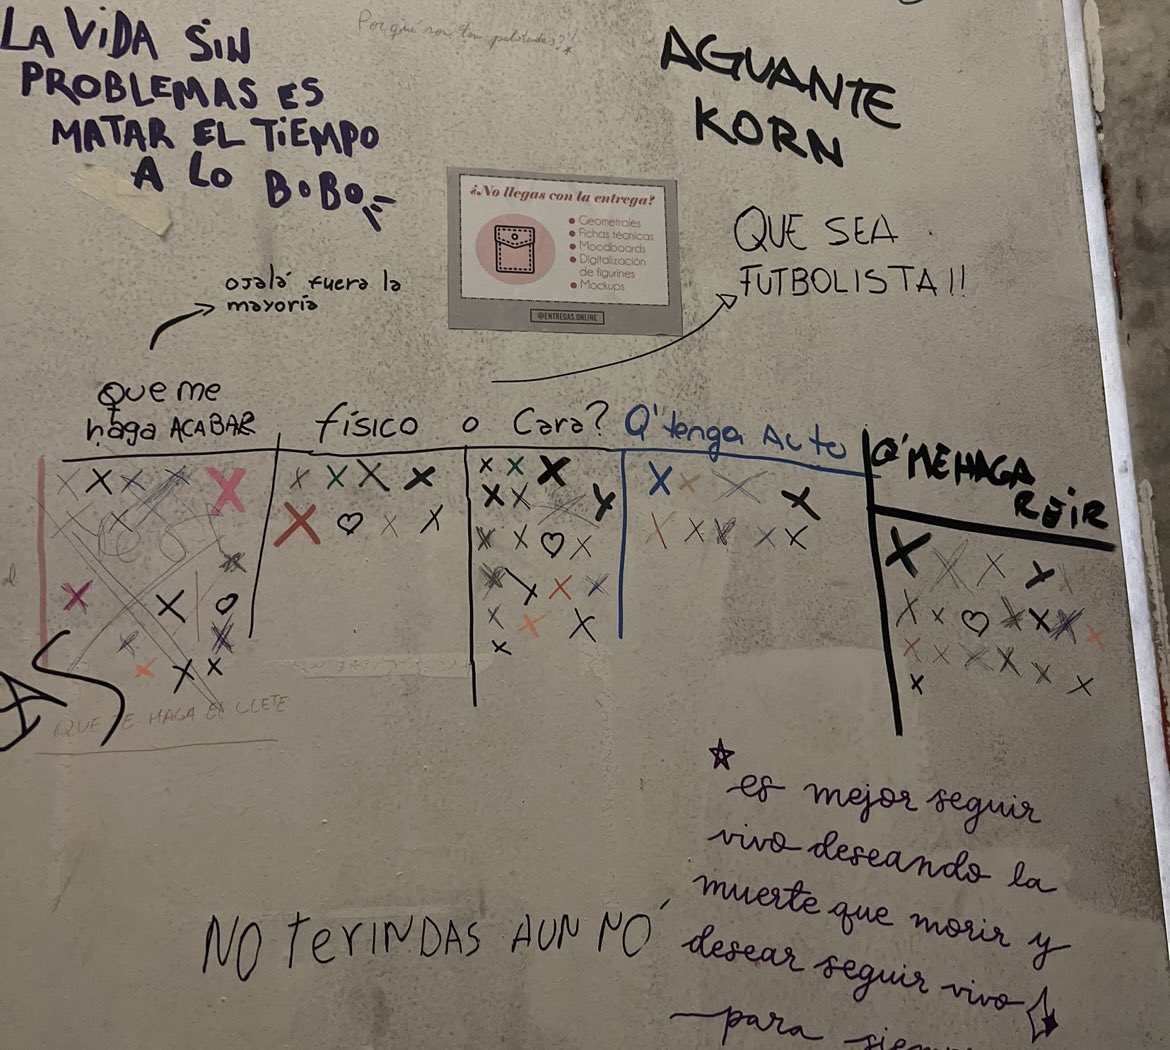 LA VIDA SIN
PROBLEMAS ES
MATAR EL TIEMPO
A LO BOBO
Porqué son tan pelotudas?!
AGUANTE
KORN
¿No llegas con la entrega?
Geometrales
Fichas técnicas
Moodboards
Digitalización
de figurines
Mockups
@ENTREGAS.ONLINE
QUE SEA
FUTBOLISTA!!
ojalá fuera la
mayoría
Que me
haga ACABAR
físico o Cara?
Q' tenga Auto
Q' ME HAGA
REIR
QUE TE HAGA EL
es mejor seguir
vivo deseando la
muerte que morir y
desear seguir vivo
para siem
NO TE RINDAS AUN NO